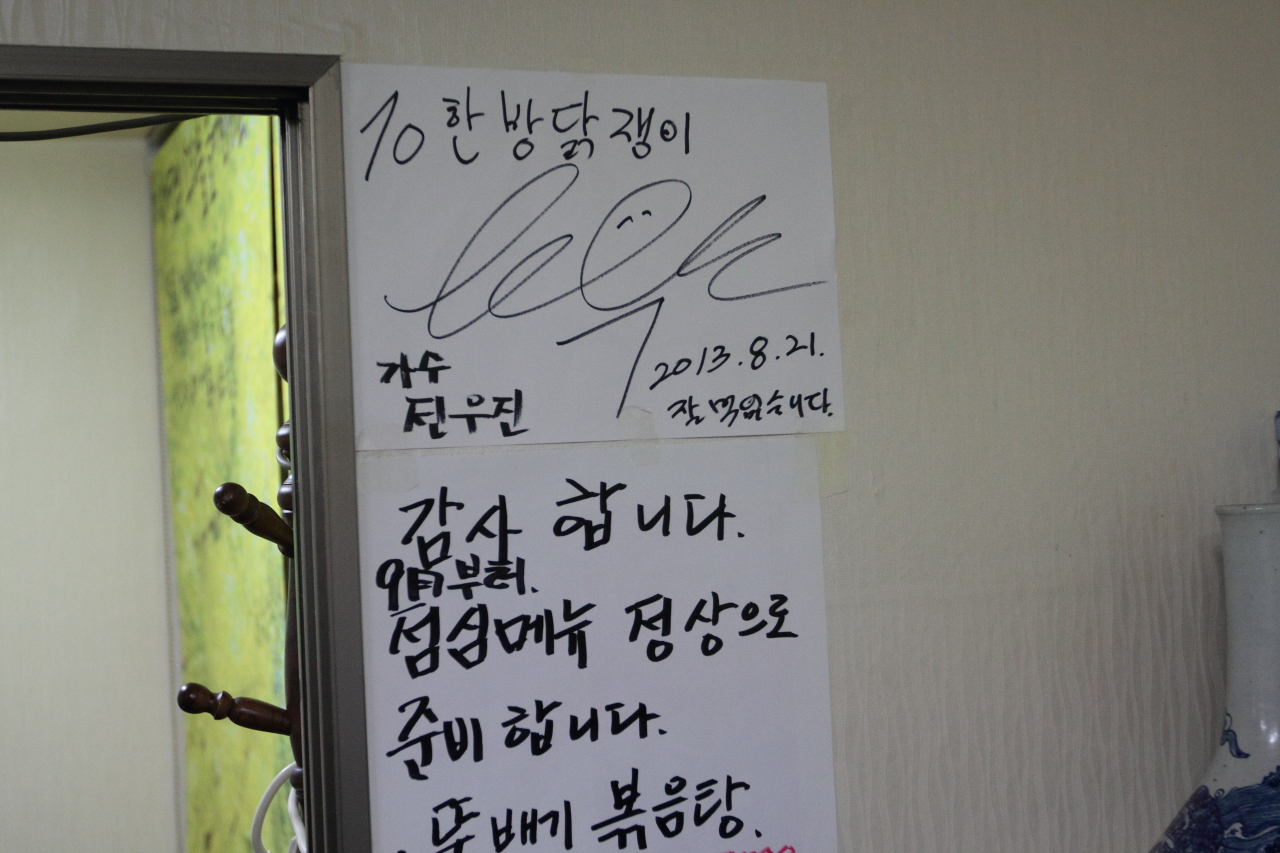 To 한방닭쟁이
가수
전우진
2013.8.21.
잘 먹었습니다.
감사 합니다.
9月부터.
점심메뉴 정상으로
준비 합니다.
뚝배기 볶음탕.